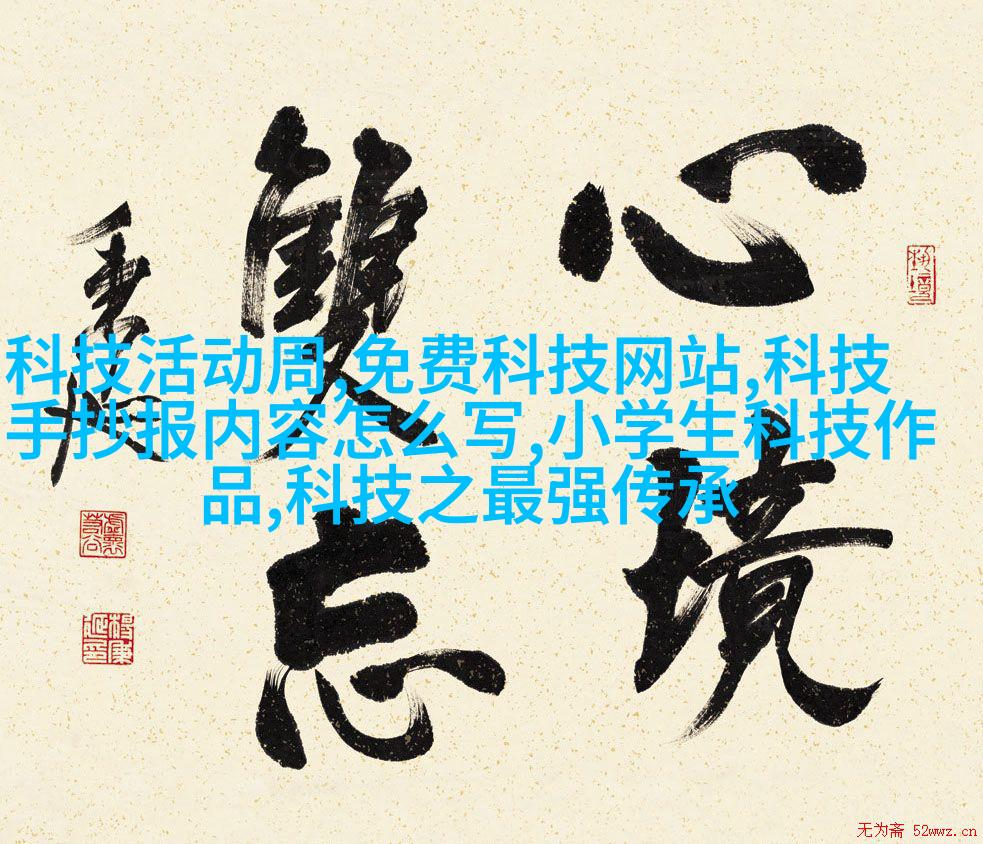 心境
雙忘
科技活动周,免费科技网站,科技
手抄报内容怎么写,小学生科技作
品,科技之最强传承
无为斋 52wwz.cn